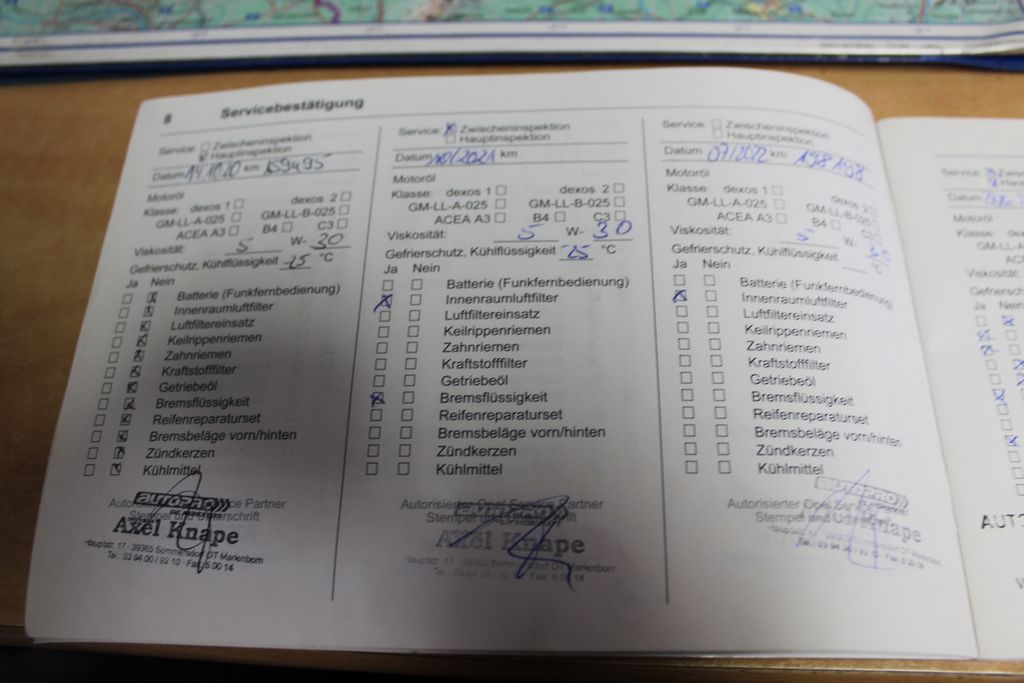 8 Servicebestätigung
Service: Zwischeninspektion
Hauptinspektion
Datum 14.10.20 km 159495
Motoröl
Klasse: dexos 1 dexos 2
GM-LL-A-025 GM-LL-B-025
ACEA A3 B4 C3
Viskosität: 5 W- 30
Gefrierschutz, Kühlflüssigkeit -25 °C
Ja Nein
Batterie (Funkfernbedienung)
Innenraumluftfilter
Luftfiltereinsatz
Keilrippenriemen
Zahnriemen
Kraftstofffilter
Getriebeöl
Bremsflüssigkeit
Reifenreparaturset
Bremsbeläge vorn/hinten
Zündkerzen
Kühlmittel
Autorisierter Opel Service Partner
Stempel und Unterschrift
AUTOPRO
Axel Knape
Hauptstr. 17 - 39365 Sommersdorf OT Marienborn
Tel.: 03 94 00 / 92 10 · Fax: 5 00 14
Service: Zwischeninspektion
Hauptinspektion
Datum 10/2021 km
Motoröl
Klasse: dexos 1 dexos 2
GM-LL-A-025 GM-LL-B-025
ACEA A3 B4 C3
Viskosität: 5 W- 30
Gefrierschutz, Kühlflüssigkeit -25 °C
Ja Nein
Batterie (Funkfernbedienung)
Innenraumluftfilter
Luftfiltereinsatz
Keilrippenriemen
Zahnriemen
Kraftstofffilter
Getriebeöl
Bremsflüssigkeit
Reifenreparaturset
Bremsbeläge vorn/hinten
Zündkerzen
Kühlmittel
Autorisierter Opel Service Partner
Stempel und Unterschrift
Axel Knape
Service: Zwischeninspektion
Hauptinspektion
Datum 07/2022 km 198198
Motoröl
Klasse: dexos 1 dexos 2
GM-LL-A-025 GM-LL-B-025
ACEA A3 B4 C3
Viskosität: 5 W- 30
Gefrierschutz, Kühlflüssigkeit °C
Ja Nein
Batterie (Funkfernbedienung)
Innenraumluftfilter
Luftfiltereinsatz
Keilrippenriemen
Zahnriemen
Kraftstofffilter
Getriebeöl
Bremsflüssigkeit
Reifenreparaturset
Bremsbeläge vorn/hinten
Zündkerzen
Kühlmittel
Autorisierter Opel Service Partner
Stempel und
Knape
Service:
Datum
Motoröl
Klasse:
Ja Nein